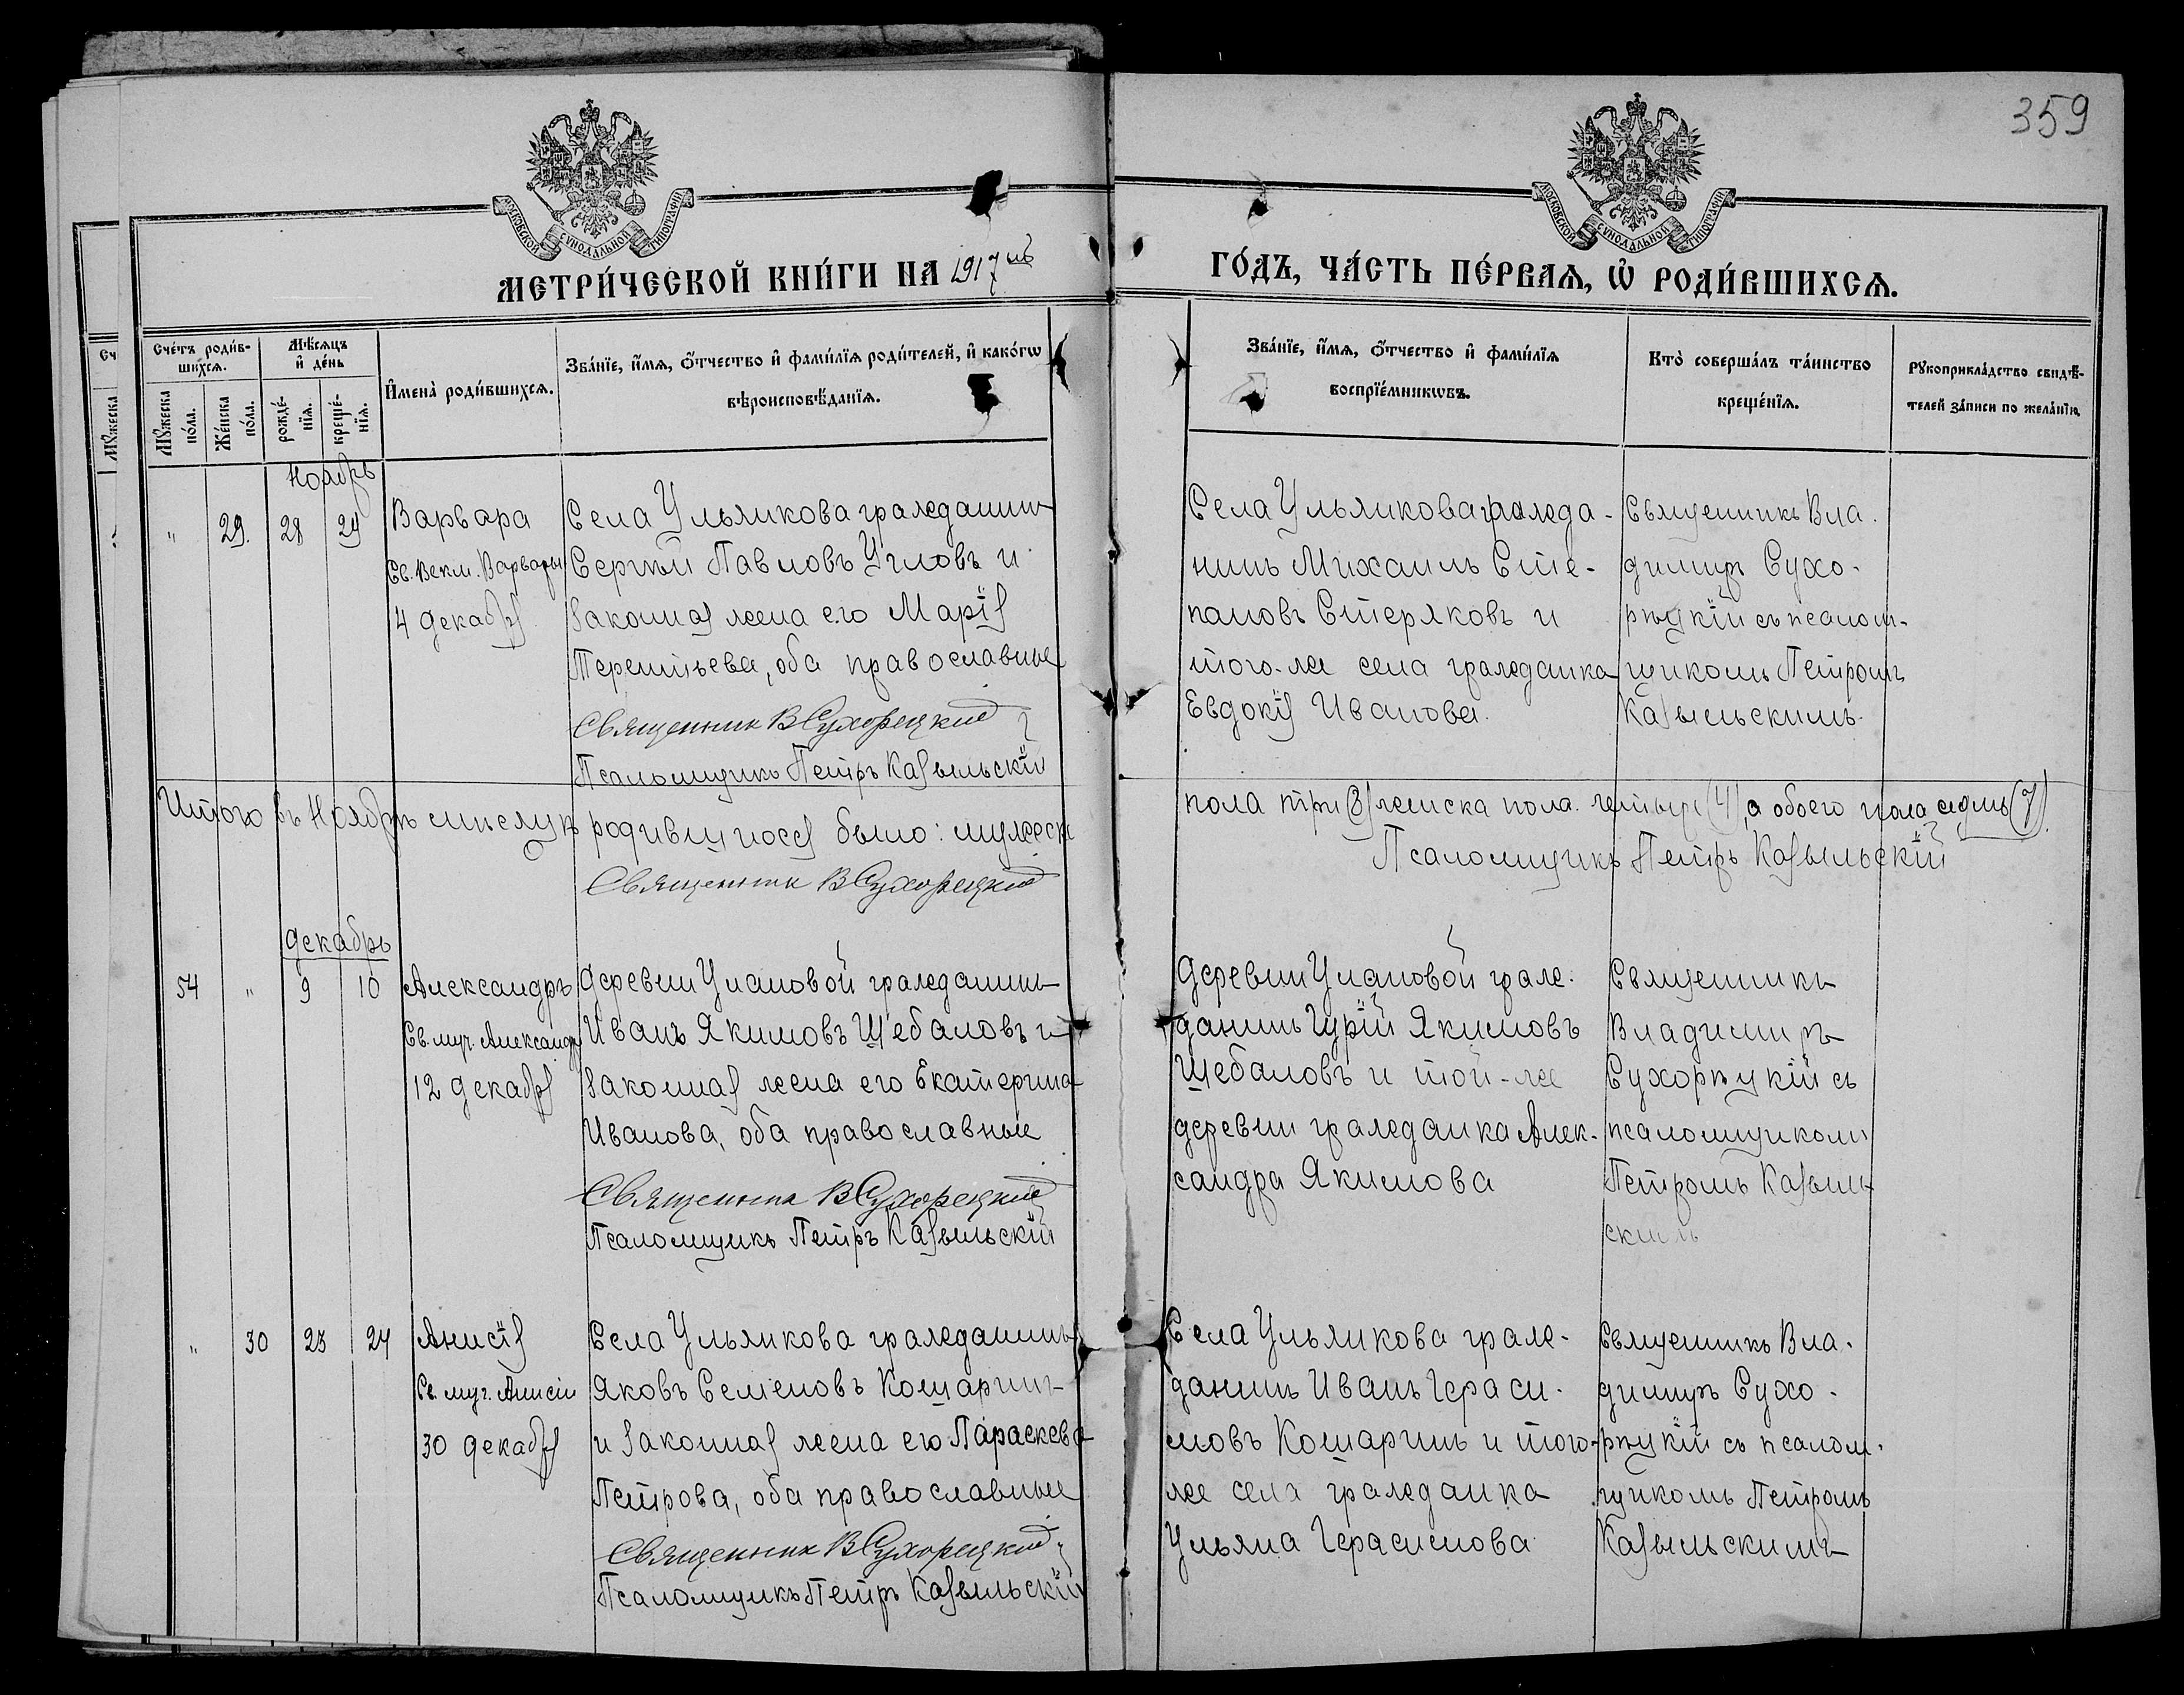 359
МОСКОВСКОЙ СѴНОДАЛЬНОЙ ТИПОГРАФІИ
МОСКОВСКОЙ СѴНОДАЛЬНОЙ ТИПОГРАФІИ
МЕТРИ́ЧЕСКОЙ КНИ́ГИ НА 1917й
ГО́ДЪ, ЧА́СТЬ ПЕ́РВАѦ, Ѡ҆ РОДИ́ВШИХСѦ.
Сче́тъ роди́в-
шихсѧ.
Мѣ́сѧцъ
и҆ де́нь
Мꙋ́жеска
по́ла.
Же́нска
по́ла.
рожде́-
нїѧ.
креще́-
нїѧ.
И҆мена̀ роди́вшихсѧ.
Зва́нїе, и҆́мѧ, ѻ҆́тчество и҆ фами́лїѧ роди́телей, и҆ како́гѡ
вѣроисповѣ́данїѧ.
Зва́нїе, и҆́мѧ, ѻ҆́тчество и҆ фами́лїѧ
воспрїе́мникѡвъ.
Кто̀ соверша́лъ та́инство
креще́нїѧ.
Рꙋкоприкла́дство свидѣ́-
телей за́писи по жела́нїю.
Ноябрь
" 29. 28 29
Варвара
Св. Векм. Варвары
4 декабря
Села Ульянкова гражданинъ
Сергѣй Павловъ Угловъ и
законная жена его Марія
Терентьева, оба православные
Священник В Сухорецкий
Псаломщикъ Петръ Казыльскій
Села Ульянкова гражда-
нинъ Михаилъ Сте-
пановъ Стеряковъ и
того-же села гражданка
Евдокія Иванова.
Священникъ Вла-
димиръ Сухо-
рѣцкій съ псалом-
щикомъ Петромъ
Казыльскимъ.
Итого въ Ноябрѣ мѣсяцѣ родившихся было: мужеск
пола три (3) женска пола четыре (4), а обоего пола седмь (7).
Священник В Сухорецкий
Псаломщикъ Петръ Казыльскій
декабрь
54 " 9 10
Александръ
Св. муч. Александр
12 декабря
Деревни Улановой гражданинъ
Иванъ Якимовъ Щебаловъ и
законная жена его Екатерина
Иванова, оба православные
Священник В Сухорецкий
Псаломщикъ Петръ Казыльскій
Деревни Улановой граж-
данинъ Гурій Якимовъ
Щебаловъ и той-же
деревни гражданка Алек-
сандра Якимова
Священникъ
Владимиръ
Сухорѣцкій съ
псаломщикомъ
Петромъ Казыль-
скимъ
" 30 23 24
Анисія
Св. муч. Анисіи
30 декабря
Села Ульянкова гражданинъ
Яковъ Семеновъ Кошаринъ
и законная жена его Параскева
Петрова, оба православные
Священник В Сухорецкий
Псаломщикъ Петръ Казыльскій
Села Ульянкова граж-
данинъ Иванъ Гераси-
мовъ Кошаринъ и того-
же села гражданка
Ульяна Герасимова
Священникъ Вла-
димиръ Сухо-
рѣцкій съ псалом-
щикомъ Петромъ
Казыльскимъ